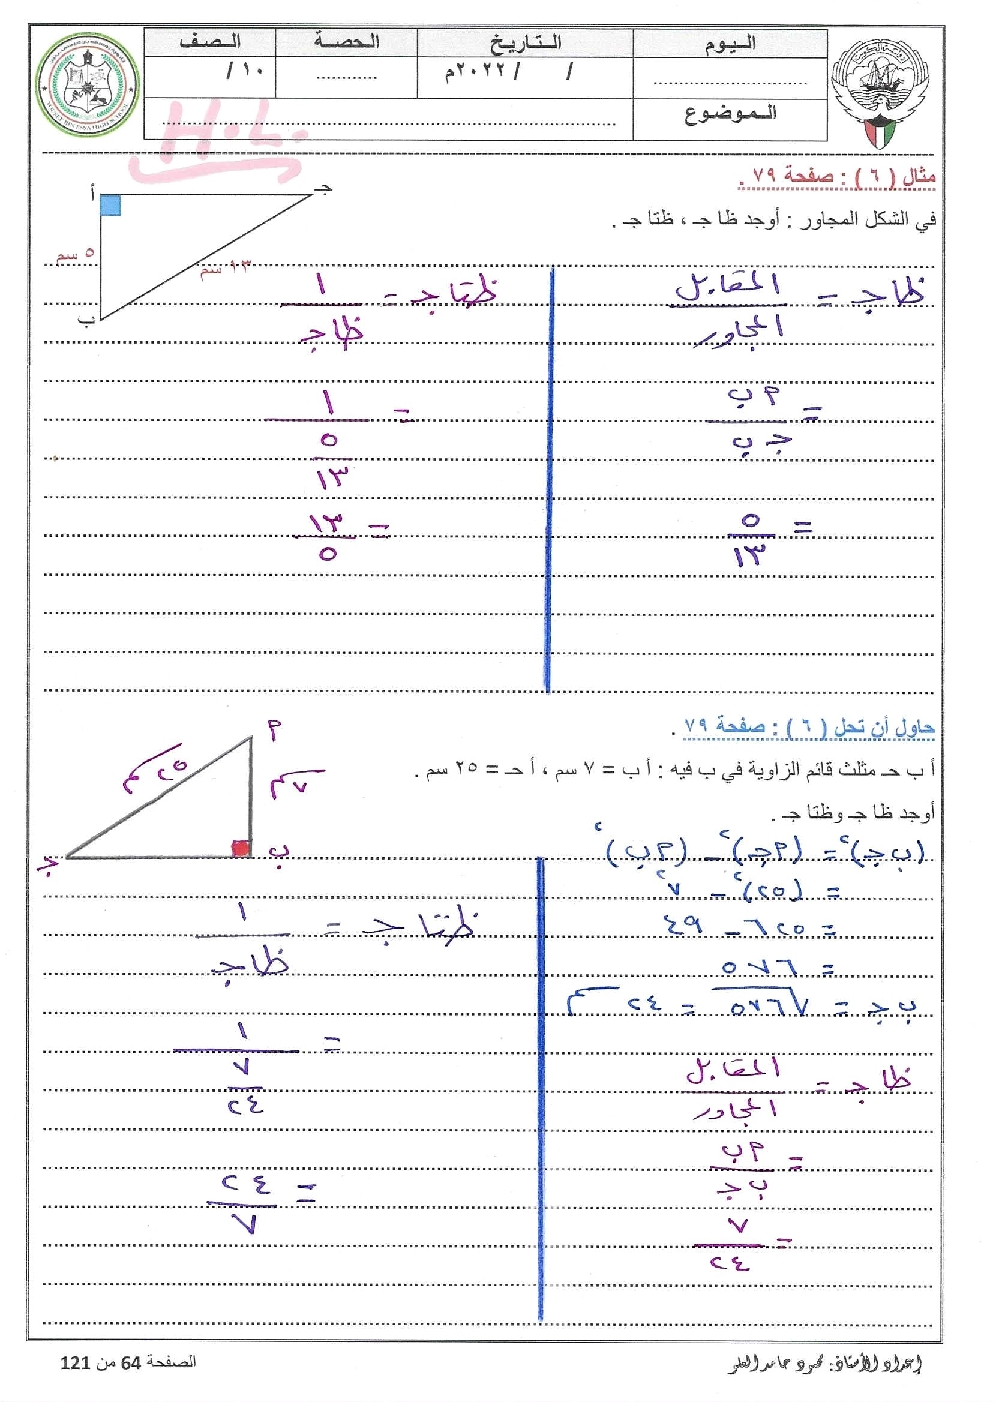 اليوم التاريخ الحصة الصف
.................... / / ٢٠٢٢م ............ ١٠/
الموضوع ....................
H.L.
مثال ( ٦ ) : صفحة ٧٩ .
في الشكل المجاور : أوجد ظا جـ ، ظتا جـ .
أ
جـ
ب
٥ سم
١٣ سم
ظا جـ = المقابل / المجاور
= ٩ ب / جـ ب
= ٥ / ١٣
ظتا جـ = ١ / ظا جـ
= ١ / ٥ / ١٣
= ١٣ / ٥
حاول أن تحل ( ٦ ) : صفحة ٧٩ .
أ ب حـ مثلث قائم الزاوية في ب فيه : أ ب = ٧ سم ، أ حـ = ٢٥ سم .
أوجد ظا جـ وظتا جـ .
٩
ب
جـ
٢٥ سم
٧ سم
(ب جـ)٢ = (٩ جـ)٢ – (٩ ب)٢
= (٢٥)٢ – ٧٢
= ٦٢٥ – ٤٩
= ٥٧٦
ب جـ = √٥٧٦ = ٢٤ سم
ظا جـ = المقابل / المجاور
= ٩ ب / ب جـ
= ٧ / ٢٤
ظتا جـ = ١ / ظا جـ
= ١ / ٧ / ٢٤
= ٢٤ / ٧
إعداد الأستاذ: محمود حامد العلو
الصفحة 64 من 121